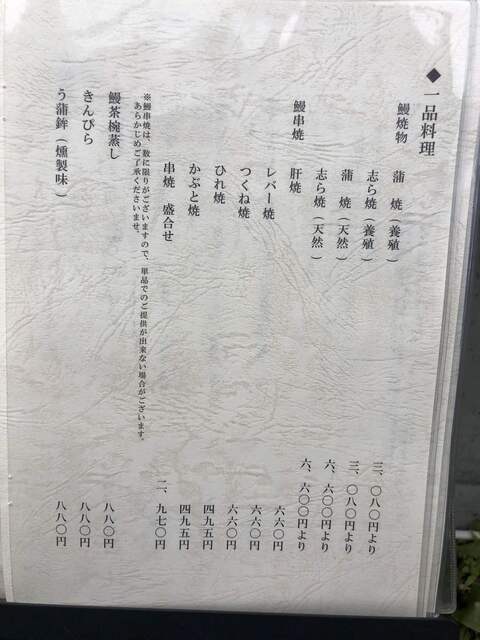 ◆一品料理
鰻焼物 蒲 焼(養殖) 三、〇八〇円より
志ら焼(養殖) 三、〇八〇円より
蒲 焼(天然) 六、六〇〇円より
志ら焼(天然) 六、六〇〇円より
鰻串焼 肝焼 六六〇円
レバー焼 六六〇円
つくね焼 六六〇円
ひれ焼 四九五円
かぶと焼 四九五円
串焼 盛合せ 二、九七〇円
※鰻串焼は、数に限りがございますので、単品でのご提供が出来ない場合がございます。
あらかじめご了承くださいませ。
鰻茶椀蒸し 八八〇円
きんぴら 八八〇円
う蒲鉾(燻製味) 八八〇円